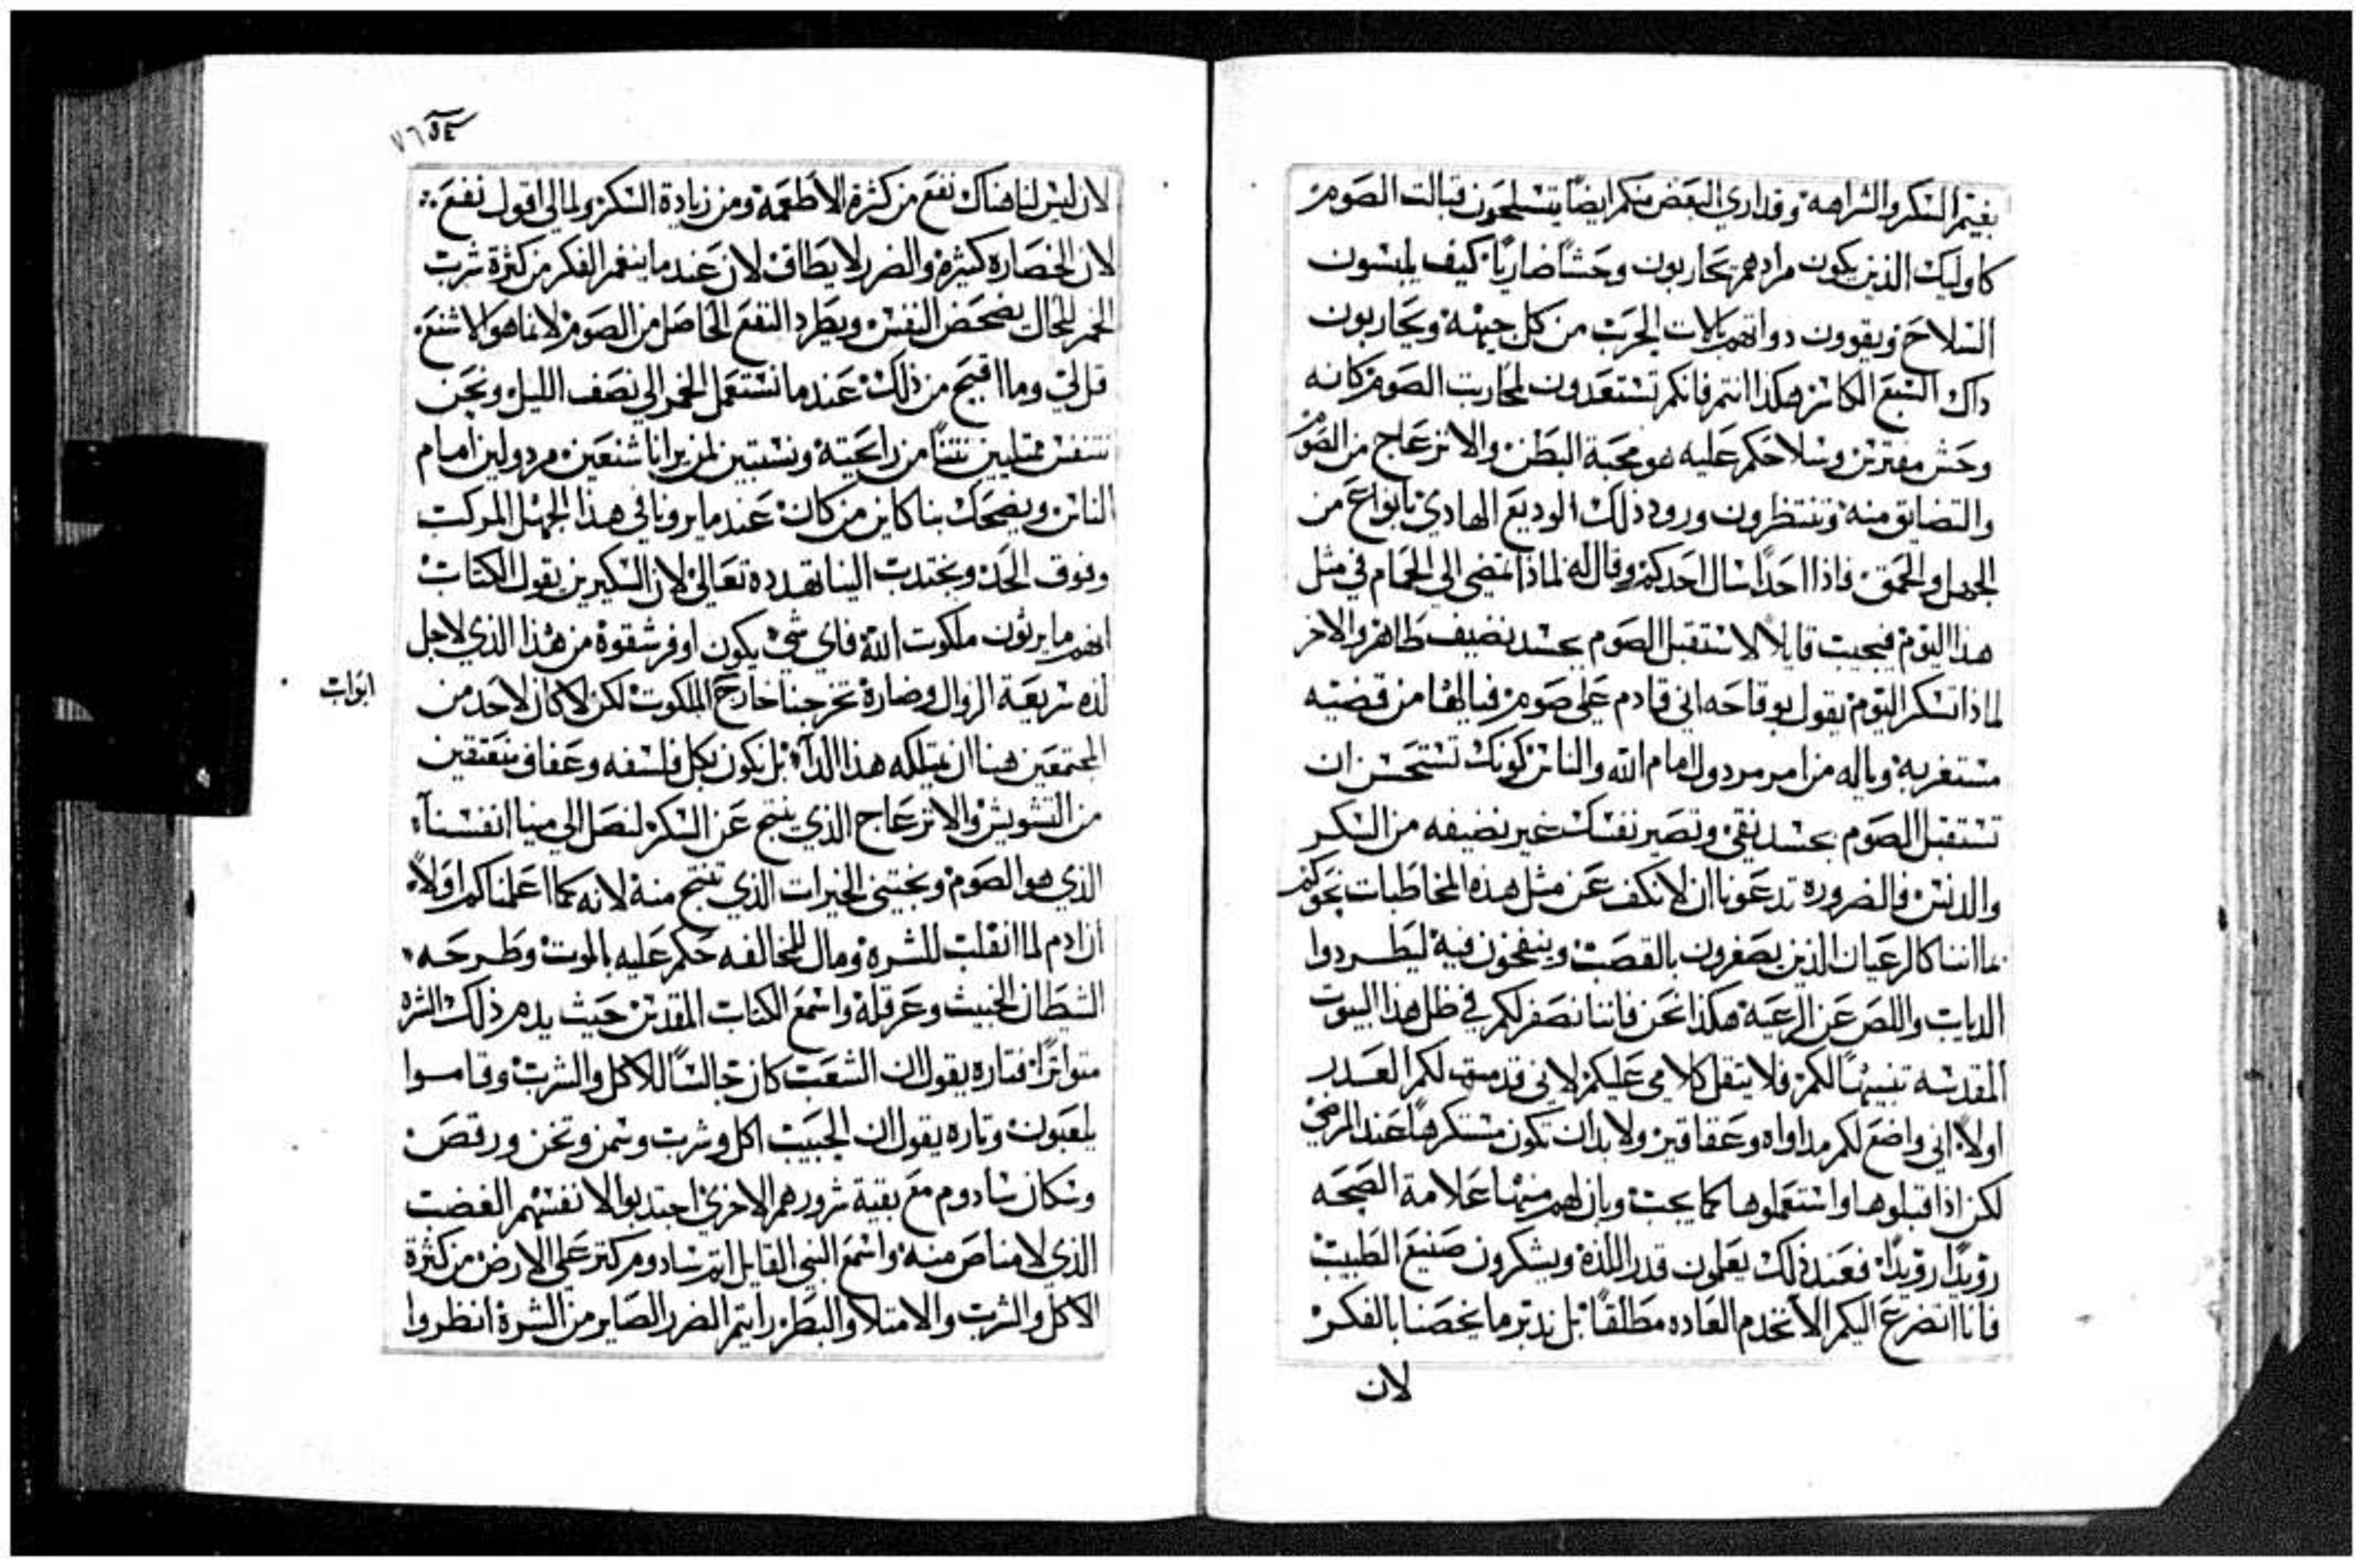 بغيتم السكر والشراهه وقد اري البعض منكم ايضًا يتسلحون قبالت الصوم
كاوليك الذين يكون مرادهم يحاربون وحشًا ضاريًا كيف يلبسون
السلاح ويقوون دواتهم بالات الحرب من كل جهة ويحاربون
داك السبع الكاسر هكذا انتم فانكم تستعدون لمحاربت الصوم كانه
وحش مفترس وسلاحكم عليه هو محبة البطن والانزعاج من الصوم
والتضايق منه وتنتظرون ورود ذلك الوديع الهادي بانواع من
الجهل والحمق فاذا احدًا سال احدكم وقال له لماذا تمضي الي الحمام في مثل
هذا اليوم فيجيب قايلًا لاستقبل الصوم بجسد نضيف طاهر والاخر
لماذا تسكر اليوم يقول بوقاحه اني قادم علي صوم فيالها من قضيه
مستغربه وياله من امر مردول امام الله والناس كونك تستحسن ان
تستقبل الصوم بجسد نقي وتصير نفسك غير نضيفه من السكر
والدنس فالضروره تدعونا ان لا نكف عن مثل هذه المخاطبات نحوكم
بما اننا كالرعيان الذين يصفرون بالقصب وينفخون فيه ليطردوا
الدياب واللص عن الرعيه هكذا نحن فاننا نصفر لكم في ظل هذا البيوت
المقدسه تنبيهًا لكم فلا يتقل كلامي عليكم لاني قدمت لكم العدر
اولًا اني واضع لكم مداواه وعقاقير ولا بد ان تكون مستكرهًا عند المرضي
لكن اذا قبلوها واستعملوها كما يجب وبان لهم منها علامة الصحه
رويدًا رويدًا فعند ذلك يعلمون قدر اللذه ويشكرون صنيع الطبيب
فانا انضرع اليكم الا نخدم العاده مطلقًا بل ندبر ما يخصنا بالفكر
لان
٧٦
لان ليس لنا هناك نفع من كثرة الاطعمة ومن زيادة السكر ولمالي اقول نفع
لان الخصاره كثيرة والضرر لا يطاق لان عندما ينغمر الفكر من كثرة شرب
الخمر للحال يضمحض النفس ويطرد النفع الحاصل من الصوم لانما هو الاشنع
قل لي وما اقبح من ذلك عندما نستعمل الخمر الي نصف الليل ونحن
نتنفس ممتليين نتنًا من رايحيته ونستبين لمن يرانا شنعين مردولين امام
الناس ويضحك بنا كاين من كان عندما يرونا في هذا الجهل المركب
وفوق الحد ويجتدب الينا تهدده تعالي لان السكيرين يقول الكتاب
انهم ما يرثون ملكوت الله فاي شي يكون اوفر شقوة من هذا الذي لاجل
لذه سريعة الزوال وضارة تخرجنا خارج الملكوت لكن لا كان لاحد من
ابواب
المجتمعين هنا ان يمتلكه هذا الدآء بل نكون بكل فلسفه وعفاف منعتقين
من التشويش والانزعاج الذي ينتج عن السكر لنصل الي مينا انفسنآ
الذي هو الصوم ونجتني الخيرات الذي تنتج منه لانه كما اعلمناكم اولًا
ان ادم لما انقلب للشره ومال للمخالفه حكم عليه بالموت وطرحه
الشيطان الخبيث وعرقله واسمع الكتاب المقدس حيث يدم ذلك الشره
متواترًا فتاره يقول ان الشعب كان جالسًا للاكل والشرب وقاموا
يلعبون وتاره يقول ان الحبيب اكل وشرب وسمن وتخن ورقص
وسكان سادوم مع بقية شرورهم الاخري اجتدبوا لانفسهم الغضب
الذي لا مناص منه واسمع النبي القايل اثم سادوم كتر علي الارض من كثرة
الاكل والشرب والامتلا والبطر رايتم الضرر الصاير من الشره انظروا